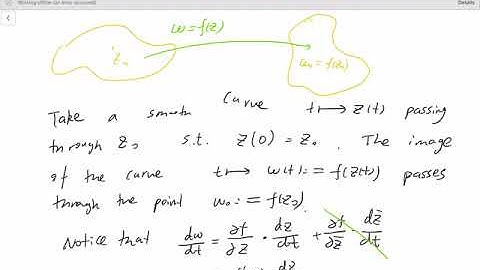 Details
w=f(z)
z₀
w₀=f(z₀)
Take a smooth curve t ↦ z(t) passing
through z₀ s.t. z(0) = z₀. The image
of the curve t ↦ w(t) := f(z(t)) passes
through the point w₀ := f(z₀)
Notice that dw/dt = ∂f/∂z · dz/dt + ∂f/∂z̄ · dz̄/dt